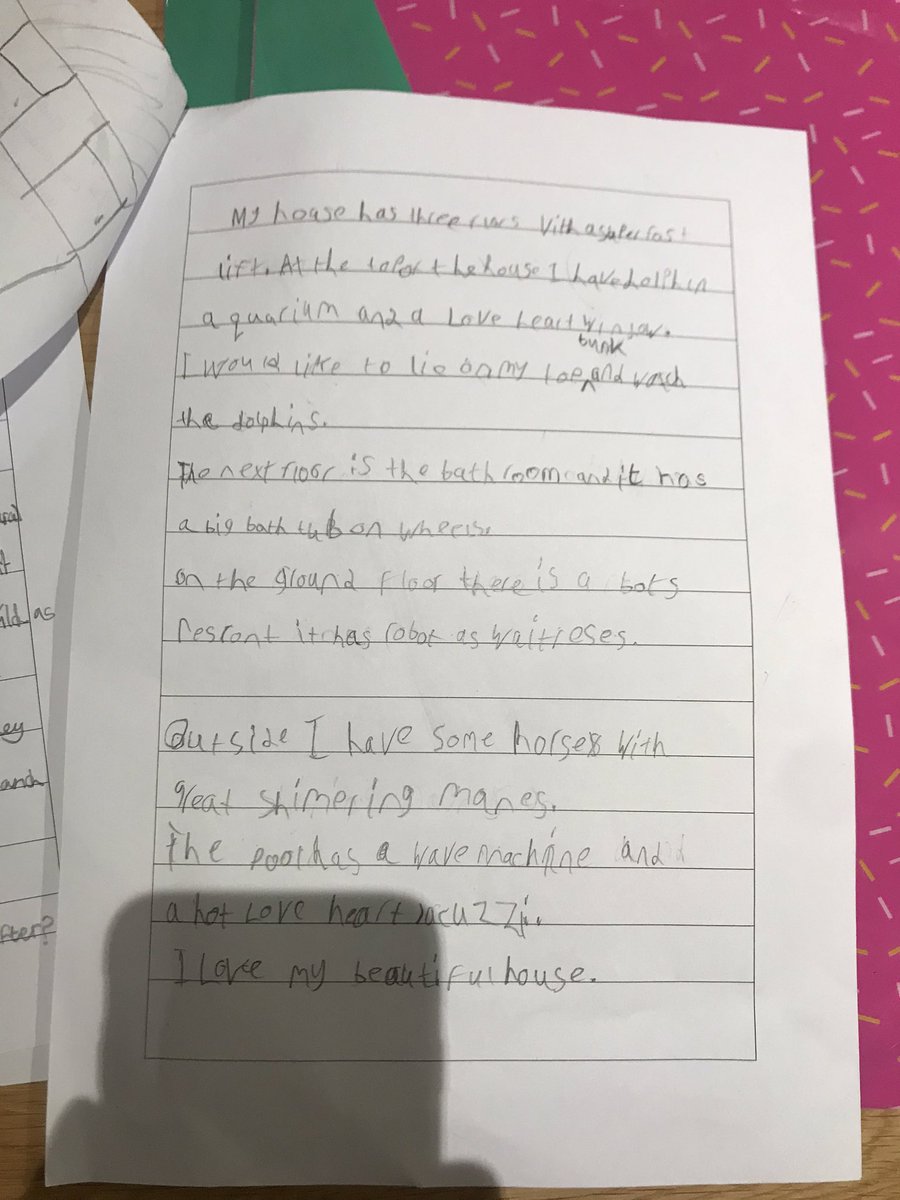 My house has three with a super fast
lift. At the top of the house I have dolphin
aquarium and a Love heart window.
bunk
I would like to lie on my and watch
the dolphins.
The next floor is the bathroom and it has
a big bath tub on wheels.
on the ground floor there is a bots
it has robot as waitroses.
Outside I have some horses with
great shimering manes.
the pool has a wave machine and
a hot Love heart Jacuzzi.
I love my beautiful house.
ild as
ey
and
fter?